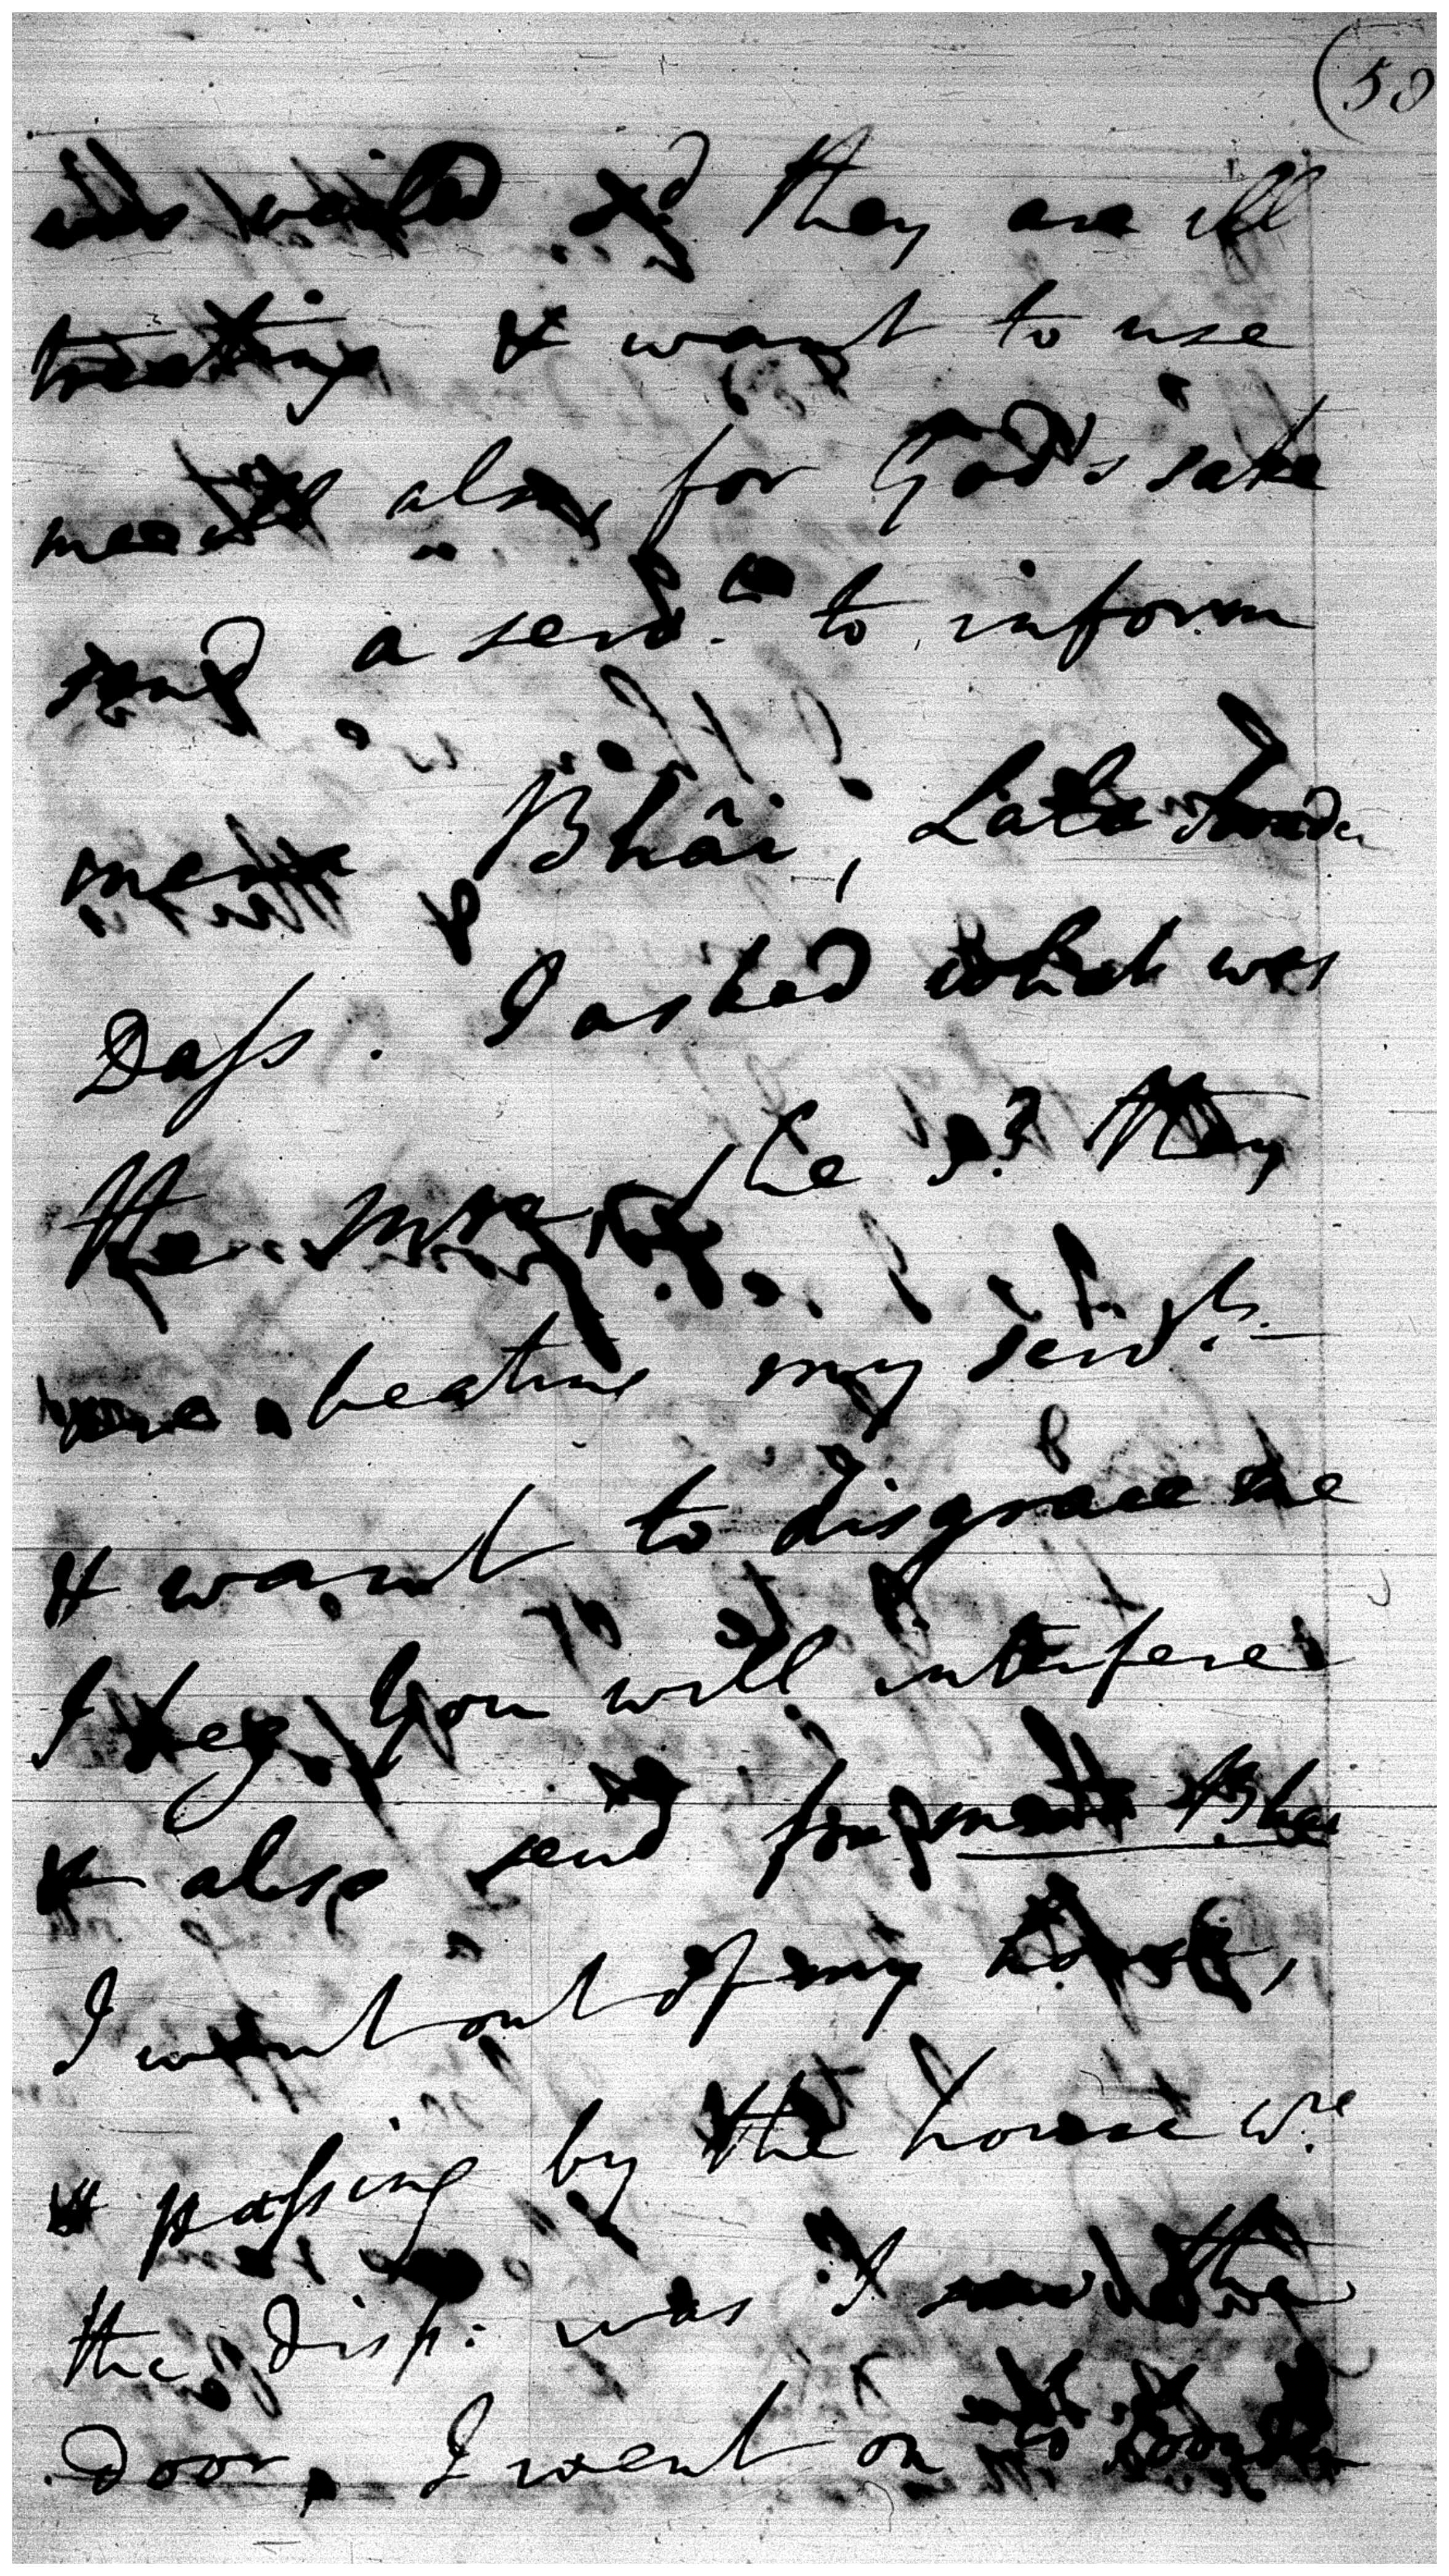 (58
and they are ill
treating & want to use
me also, for God's sake
send a servt. to inform
Bhāi, Lala
Dass. I asked which was
the he s? They
are beating my servts.
& want to disgrace me
I beg you will interfere
& also send for Bhai
I went out of my house,
& passing by the house wre
the disp: was I saw the
Door, I went on to